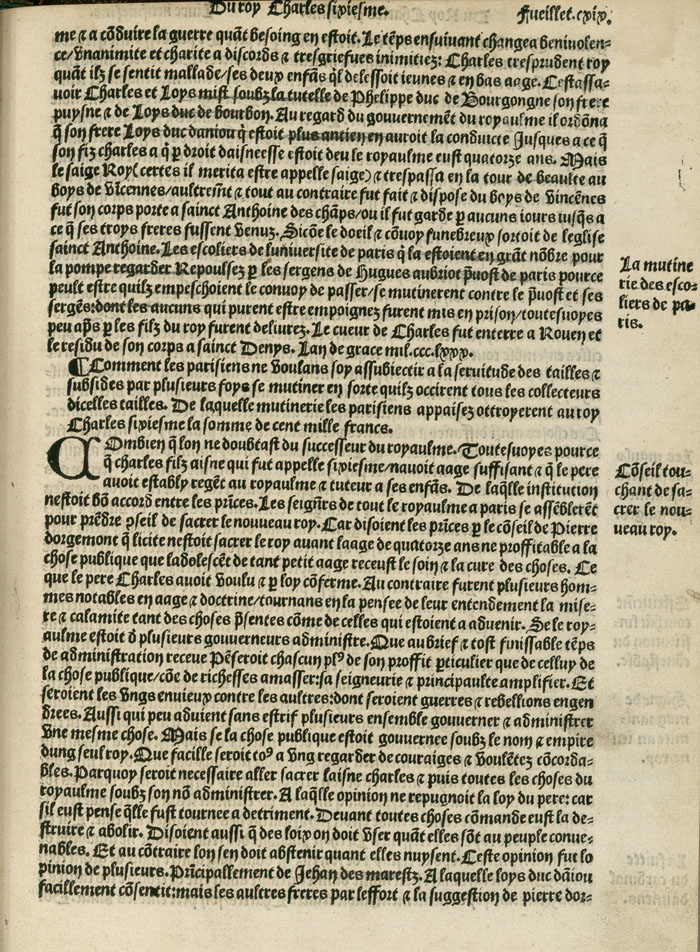 Du roy Charles sixiesme.
Fueillet.cxix.
me ⁊ a cõduire la guerre quãt besoing en estoit. Le tẽps ensuivant changea benivolen-
ce/vnanimite et charite a discords ⁊ tresgriefues inimitiez: Charles tresprudent roy
quãt ilz se sentit mallade/ses deux enfãs ql delessoit ieunes ⁊ en bas aage. Cestassa-
uoir Charles et Loys mist soubz la tutelle de Phelippe duc de Bourgongne son frere
puysne ⁊ de Loys duc de bourbon. Au regard du gouuernemẽt du royaulme il ordõna
q̃ son frere Loys duc daniou q̃ estoit plus antien en auroit la conduicte Jusques a ce q̃
son filz charles a q̃ p̱ droit daisneesse estoit deu le royaulme eust quatorze ans. Mais
le saige Roy( certes il merita estre appelle saige) ⁊ trespassa en la tour de beaulte au
boys de vicennes/aultremt̃ ⁊ tout au contraire fut fait ⁊ dispose du boys de vincẽnes
fut son corps porte a sainct Anthoine des chãps/ou il fut garde p̱ aucuns iours iusq̃s a
ce q̃ ses troys freres fussent venuz. Sicõe le doeil ⁊ cõuoy funebreux sortoit de leglise
sainct Anthoine. Les escoliers de luniuersite de paris q̃ la estoient en grãt nõbre pour
la pompe regarder Repoussez p̱ les sergens de Hugues aubriot p̃uost de paris pource
peult estre quilz empeschoient le conuoy de passer/se mutinerent contre le p̃uost et ses
sergẽs:dont les aucuns qui purent estre empoignez furent mis en prison/toutesuoyes
peu ap̃s p̱ les filz du roy furent deliurez. Le cueur de Charles fut enterre a Rouen et
le residu de son corps a sainct Denys. Lan de grace mil.ccc.lxxx.
La mutine
rie des esco-
liers de pa-
ris.
¶Comment les parisiens ne voulans soy assubiectir a la seruitude des tailles ⁊
subsides par plusieurs foys se mutiner en sorte quilz occirent tous les collecteurs
dicelles tailles. De laquelle mutinerie les parisiens appaisez ottroyerent au roy
Charles sixiesme la somme de cent mille francs.
COmbien q̃ lon ne doubtast du successeur du royaulme. Toutesuoyes pource
q̃ charles filz aisne qui fut appelle sixiesme/nauoit aage suffisant ⁊ q̃ le pere
auoit estably regẽt au royaulme ⁊ tuteur a ses enfãs. De laq̃lle institution
nestoit bõ accord entre les pri̇̃ces. Les seign̄rs de tout le royaulme a paris se assẽblerẽt
pour prẽdre pseil de sacrer le nouueau roy. Car disoient les pri̇̃ces p̱ le cõseil de Pierre
dorgemont q̃ licite nestoit sacrer le roy auant laage de quatorze ans ne proffitable a la
chose publique que ladolescẽt de tant petit aage receust le soin ⁊ la cure des choses. Ce
que le pere Charles auoit voulu ⁊ p̱ loy cõferme. Au contraire furent plusieurs hom-
mes notables en aage ⁊ doctrine/tournans en la pensee de leur entendement la mise-
re ⁊ calamite tant des choses p̃sentes cõme de celles qui estoient a aduenir. Se le roy-
aulme estoit d̃ plusieurs gouuerneurs administre. Que au brief ⁊ tost finissable tẽps
de administration receue Pẽseroit chascun pl⁹ de son proffit p̱ticulier que de celluy de
la chose publique/cõe de richesses amasser:sa seigneurie ⁊ principaulte amplifier. Et
seroient les vngs enuieux contre les aultres:dont seroient guerres ⁊ rebellions engen
drees. Aussi qui peu aduient sans estrif plusieurs ensemble gouuerner ⁊ administrer
vne mesme chose. Mais se la chose publique estoit gouuernee soubz le nom ⁊ empire
dung seul roy. Que facille seroit to⁹ a vng regarder de couraiges ⁊ voulẽtez cõcorda-
bles. Parquoy seroit necessaire aller sacrer laisne charles ⁊ puis toutes les choses du
royaulme soubz son nõ administrer. A laq̃lle opinion ne repugnoit la loy du pere: car
sil eust pense q̃lle fust tournee a detriment. Deuant toutes choses cõmande eust la de-
struire ⁊ abolir. Disoient aussi q̃ des loix on doit vser quãt elles sõt au peuple conue-
nables. Et au cõtraire lon sen doit abstenir quant elles nuysent. Ceste opinion fut lo
pinion de plusieurs. Pri̇̃cipallement de Jehan des marestz. A laquelle loys duc dãiou
facillement cõsentit:mais les aultres freres par leffort ⁊ la suggestion de pierre dor-
Cõseil tou-
chant de sa-
crer le nou-
ueau roy.